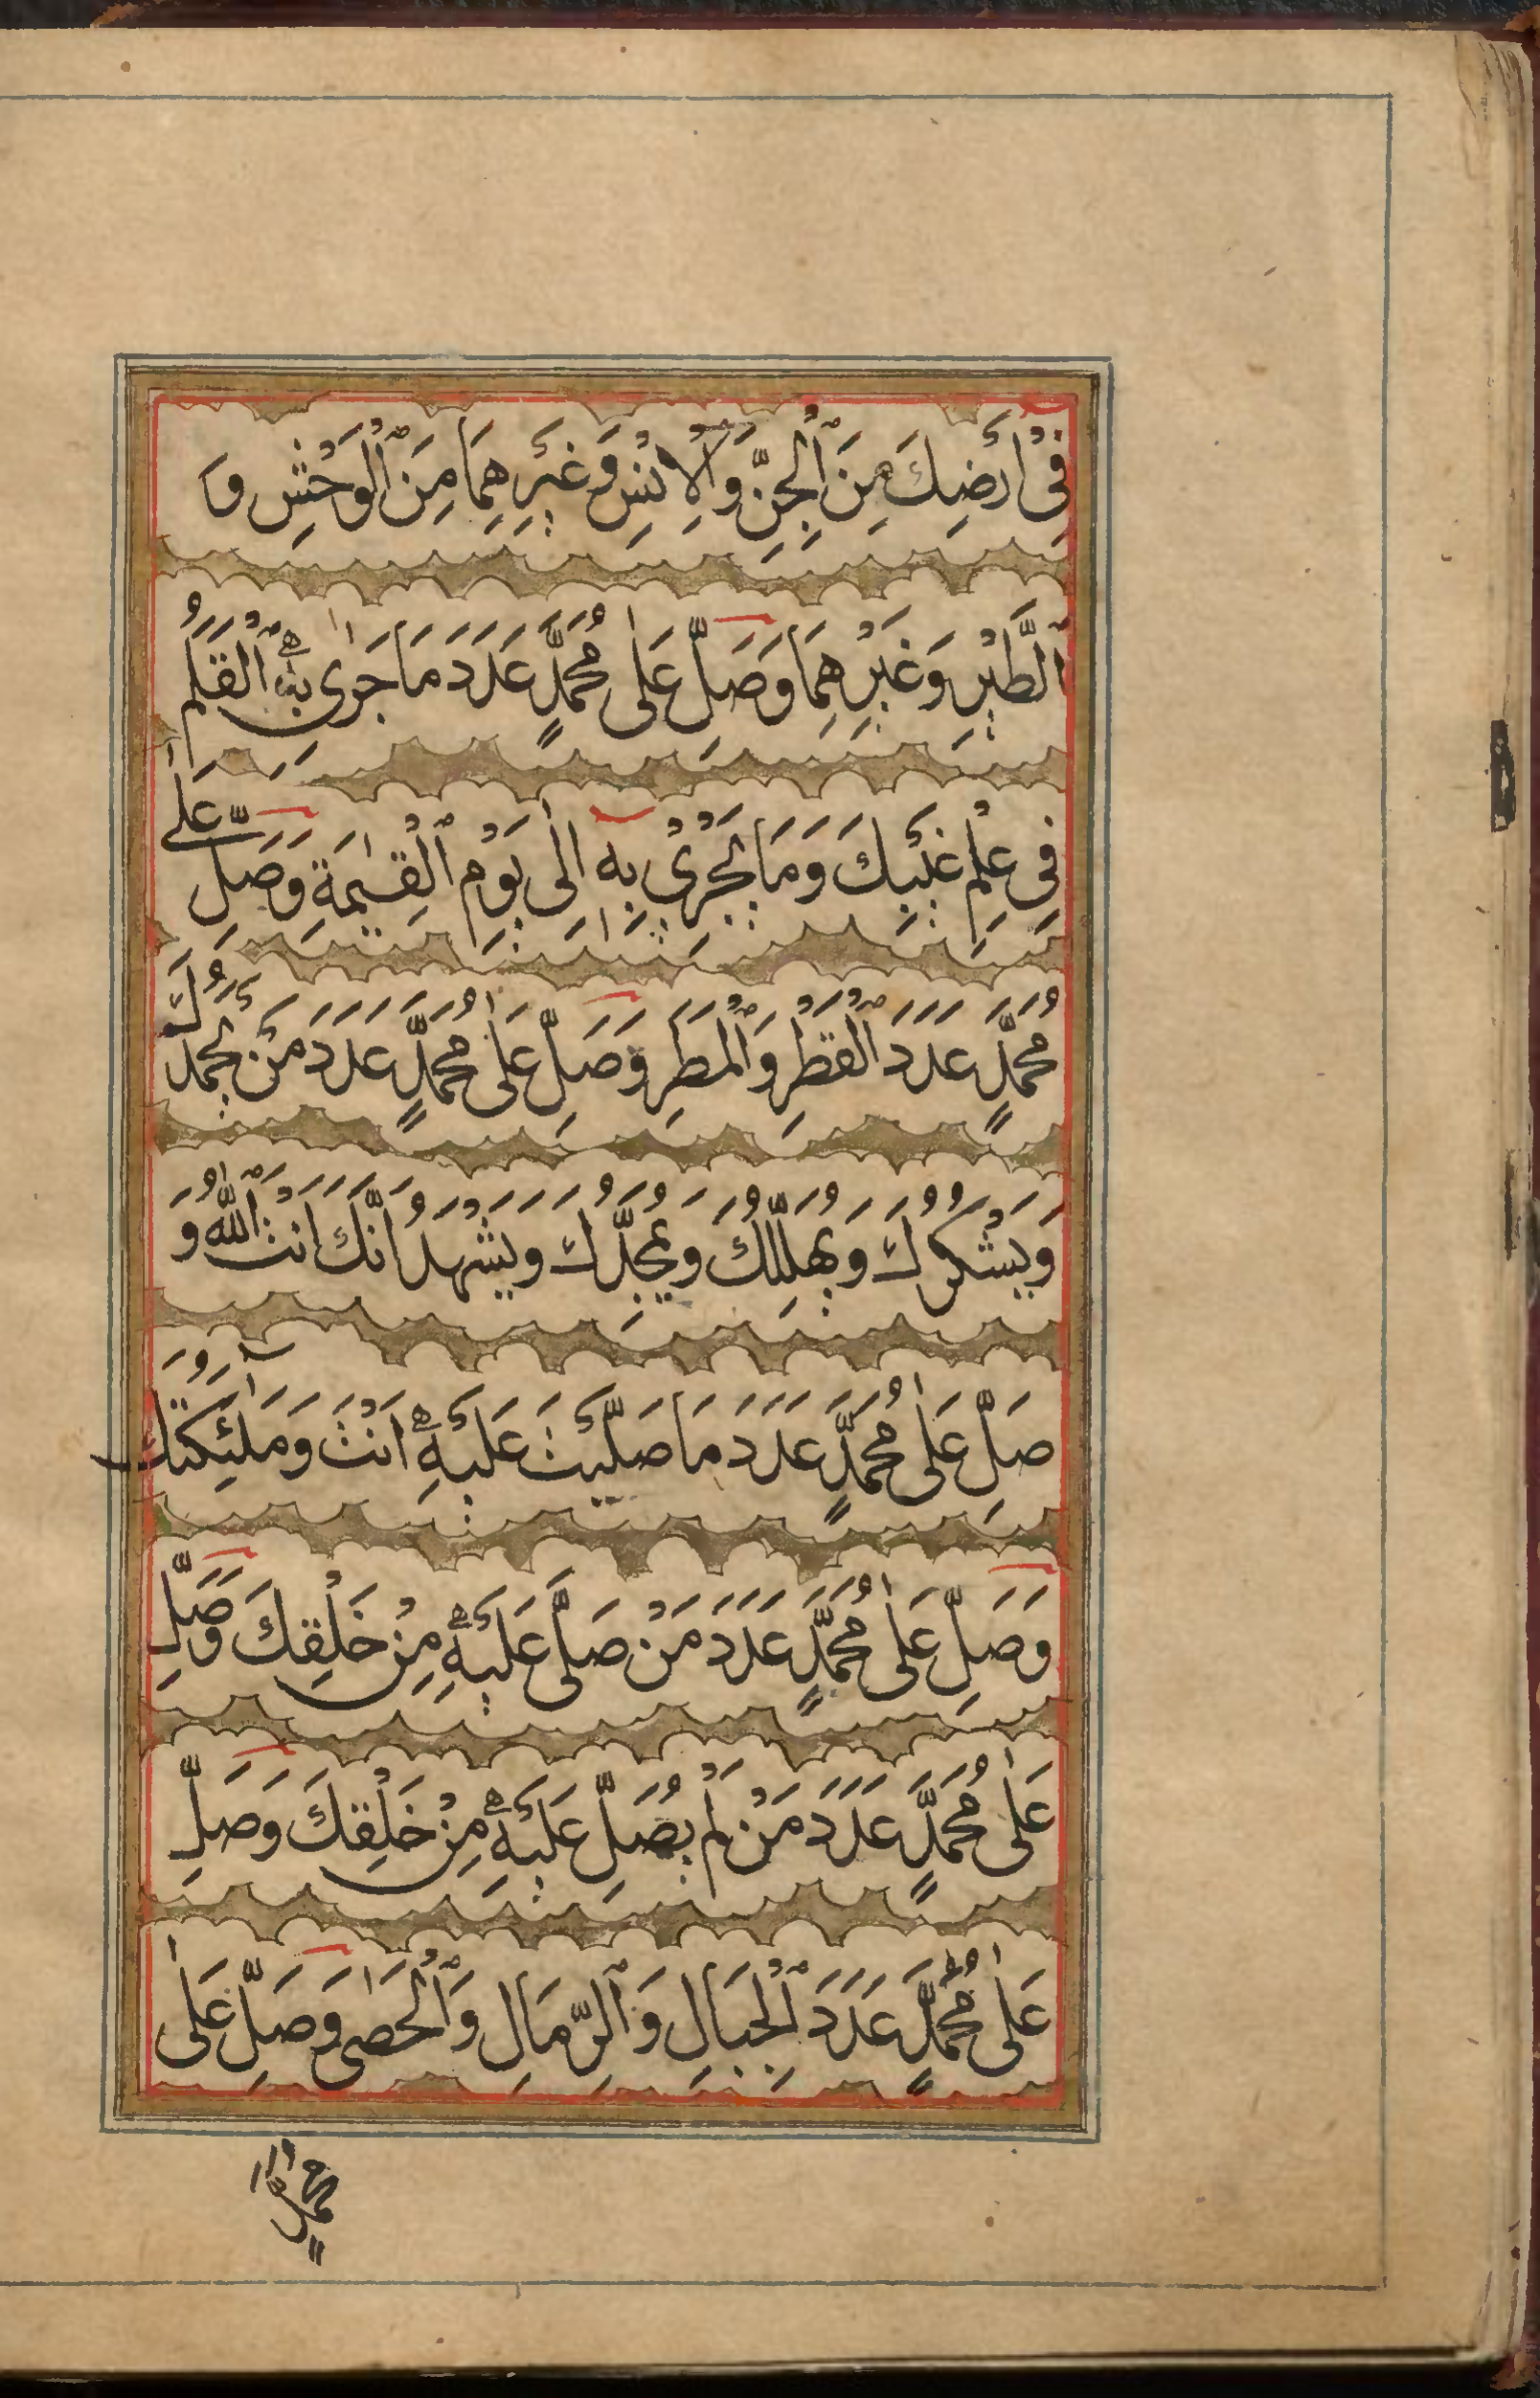 فِىْ اَرْضِكَ مِنَ ٱلْجِنِّ وَٱلْاِنْسِ وَغَيْرِهِمَا مِنَ ٱلْوَحْشِ وَ
ٱلطَّيْرِ وَغَيْرِهِمَا وَصَلِّ عَلٰى مُحَمَّدٍ عَدَدَ مَا جَرٰى بِهِ ٱلْقَلَمُ
فِى عِلْمِ غَيْبِكَ وَمَا يَجْرِىْ بِهٖ اِلٰى يَوْمِ ٱلْقِيٰمَةِ وَصَلِّ عَلٰى
مُحَمَّدٍ عَدَدَ ٱلْقَطْرِ وَٱلْمَطَرِ وَصَلِّ عَلٰى مُحَمَّدٍ عَدَدَ مَنْ يَحْمَدُكَ
وَيَشْكُرُكَ وَيُهَلِّلُكَ وَيُمَجِّدُكَ وَيَشْهَدُ اَنَّكَ اَنْتَ ٱللّٰهُ وَ
صَلِّ عَلٰى مُحَمَّدٍ عَدَدَ مَا صَلَّيْتَ عَلَيْهِ اَنْتَ وَمَلٰٓئِكَتُكَ
وَصَلِّ عَلٰى مُحَمَّدٍ عَدَدَ مَنْ صَلَّى عَلَيْهِ مِنْ خَلْقِكَ وَصَلِّ
عَلٰى مُحَمَّدٍ عَدَدَ مَنْ لَمْ يُصَلِّ عَلَيْهِ مِنْ خَلْقِكَ وَصَلِّ
عَلٰى مُحَمَّدٍ عَدَدَ ٱلْجِبَالِ وَٱلرِّمَالِ وَٱلْحَصٰى وَصَلِّ عَلٰى
مُحَمَّدٍ